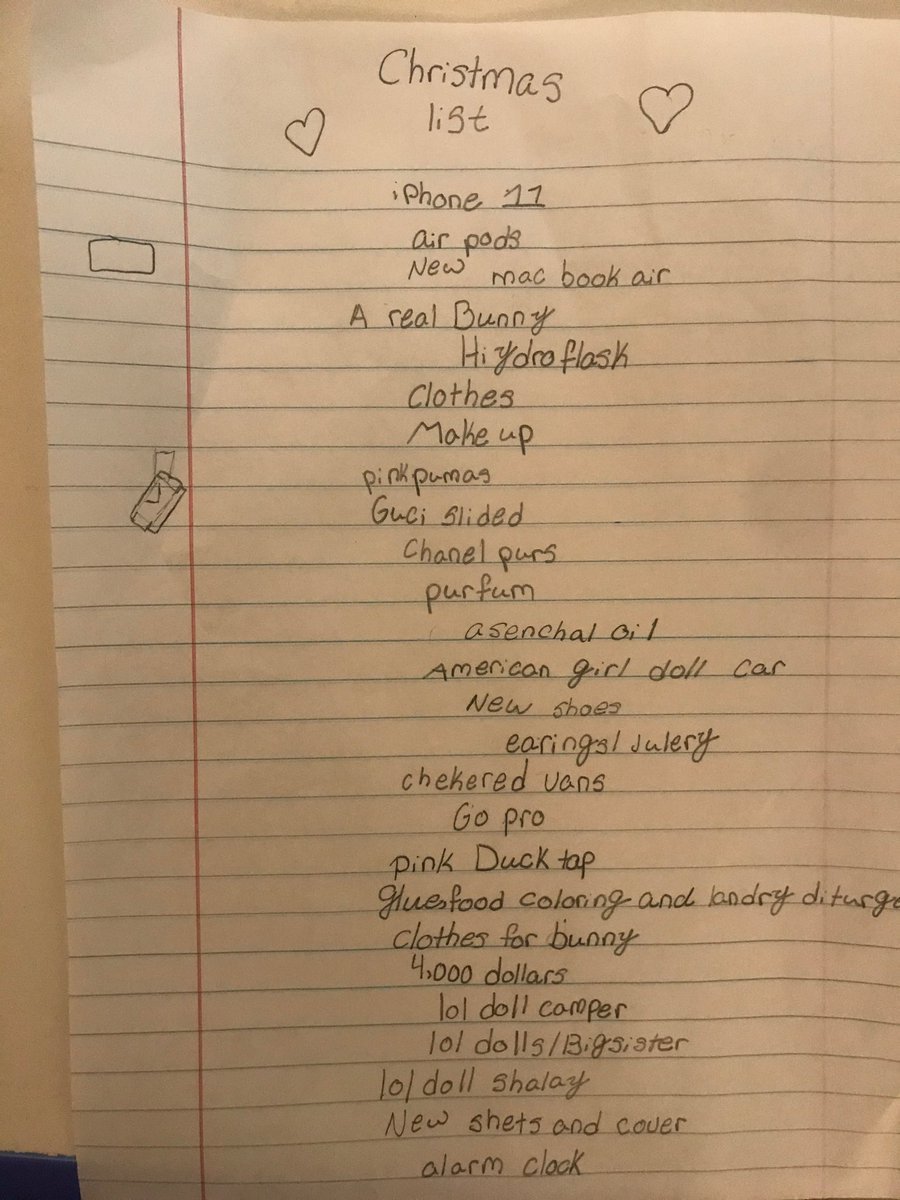 Christmas
list
iPhone 11
air pods
New mac book air
A real Bunny
Hiydroflask
Clothes
Make up
pink pumas
Guci slided
Chanel purs
purfum
asenchal oil
American girl doll car
New shoes
earings/ Julery
chekered vans
Go pro
pink Duck tap
glue,food coloring and landry diturge
Clothes for bunny
4,000 dollars
lol doll camper
lol dolls/Bigsister
lol doll shalay
New shets and cover
alarm clock